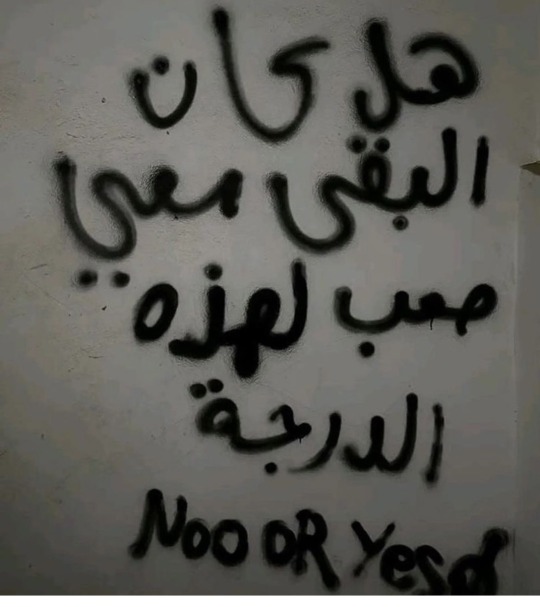 هل كان
البقى معي
صعب لهذه
الدرجة
Noo OR Yes